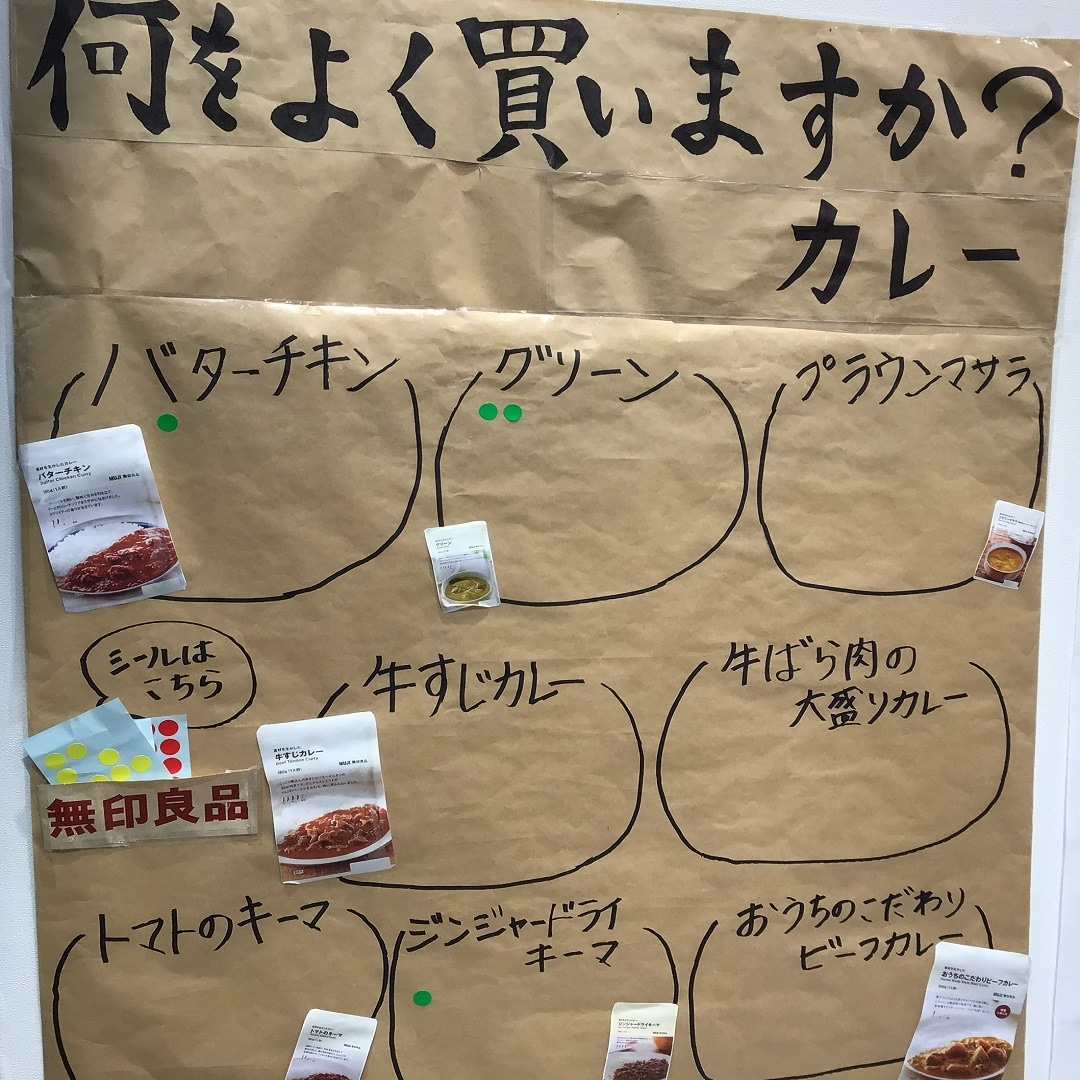 何をよく買いますか?
カレー
バターチキン
グリーン
プラウンマサラ
素材を生かしたカレー
バターチキン
Butter Chicken Curry
MUJI 無印良品
グリーン
シールは
こちら
無印良品
牛すじカレー
素材を生かした
牛すじカレー
Beef Tendon Curry
MUJI 無印良品
牛ばら肉の
大盛りカレー
トマトのキーマ
トマトのキーマ
ジンジャードライ
キーマ
ジンジャードライキーマ
おうちのこだわり
ビーフカレー
素材を生かした
おうちのこだわりビーフカレー